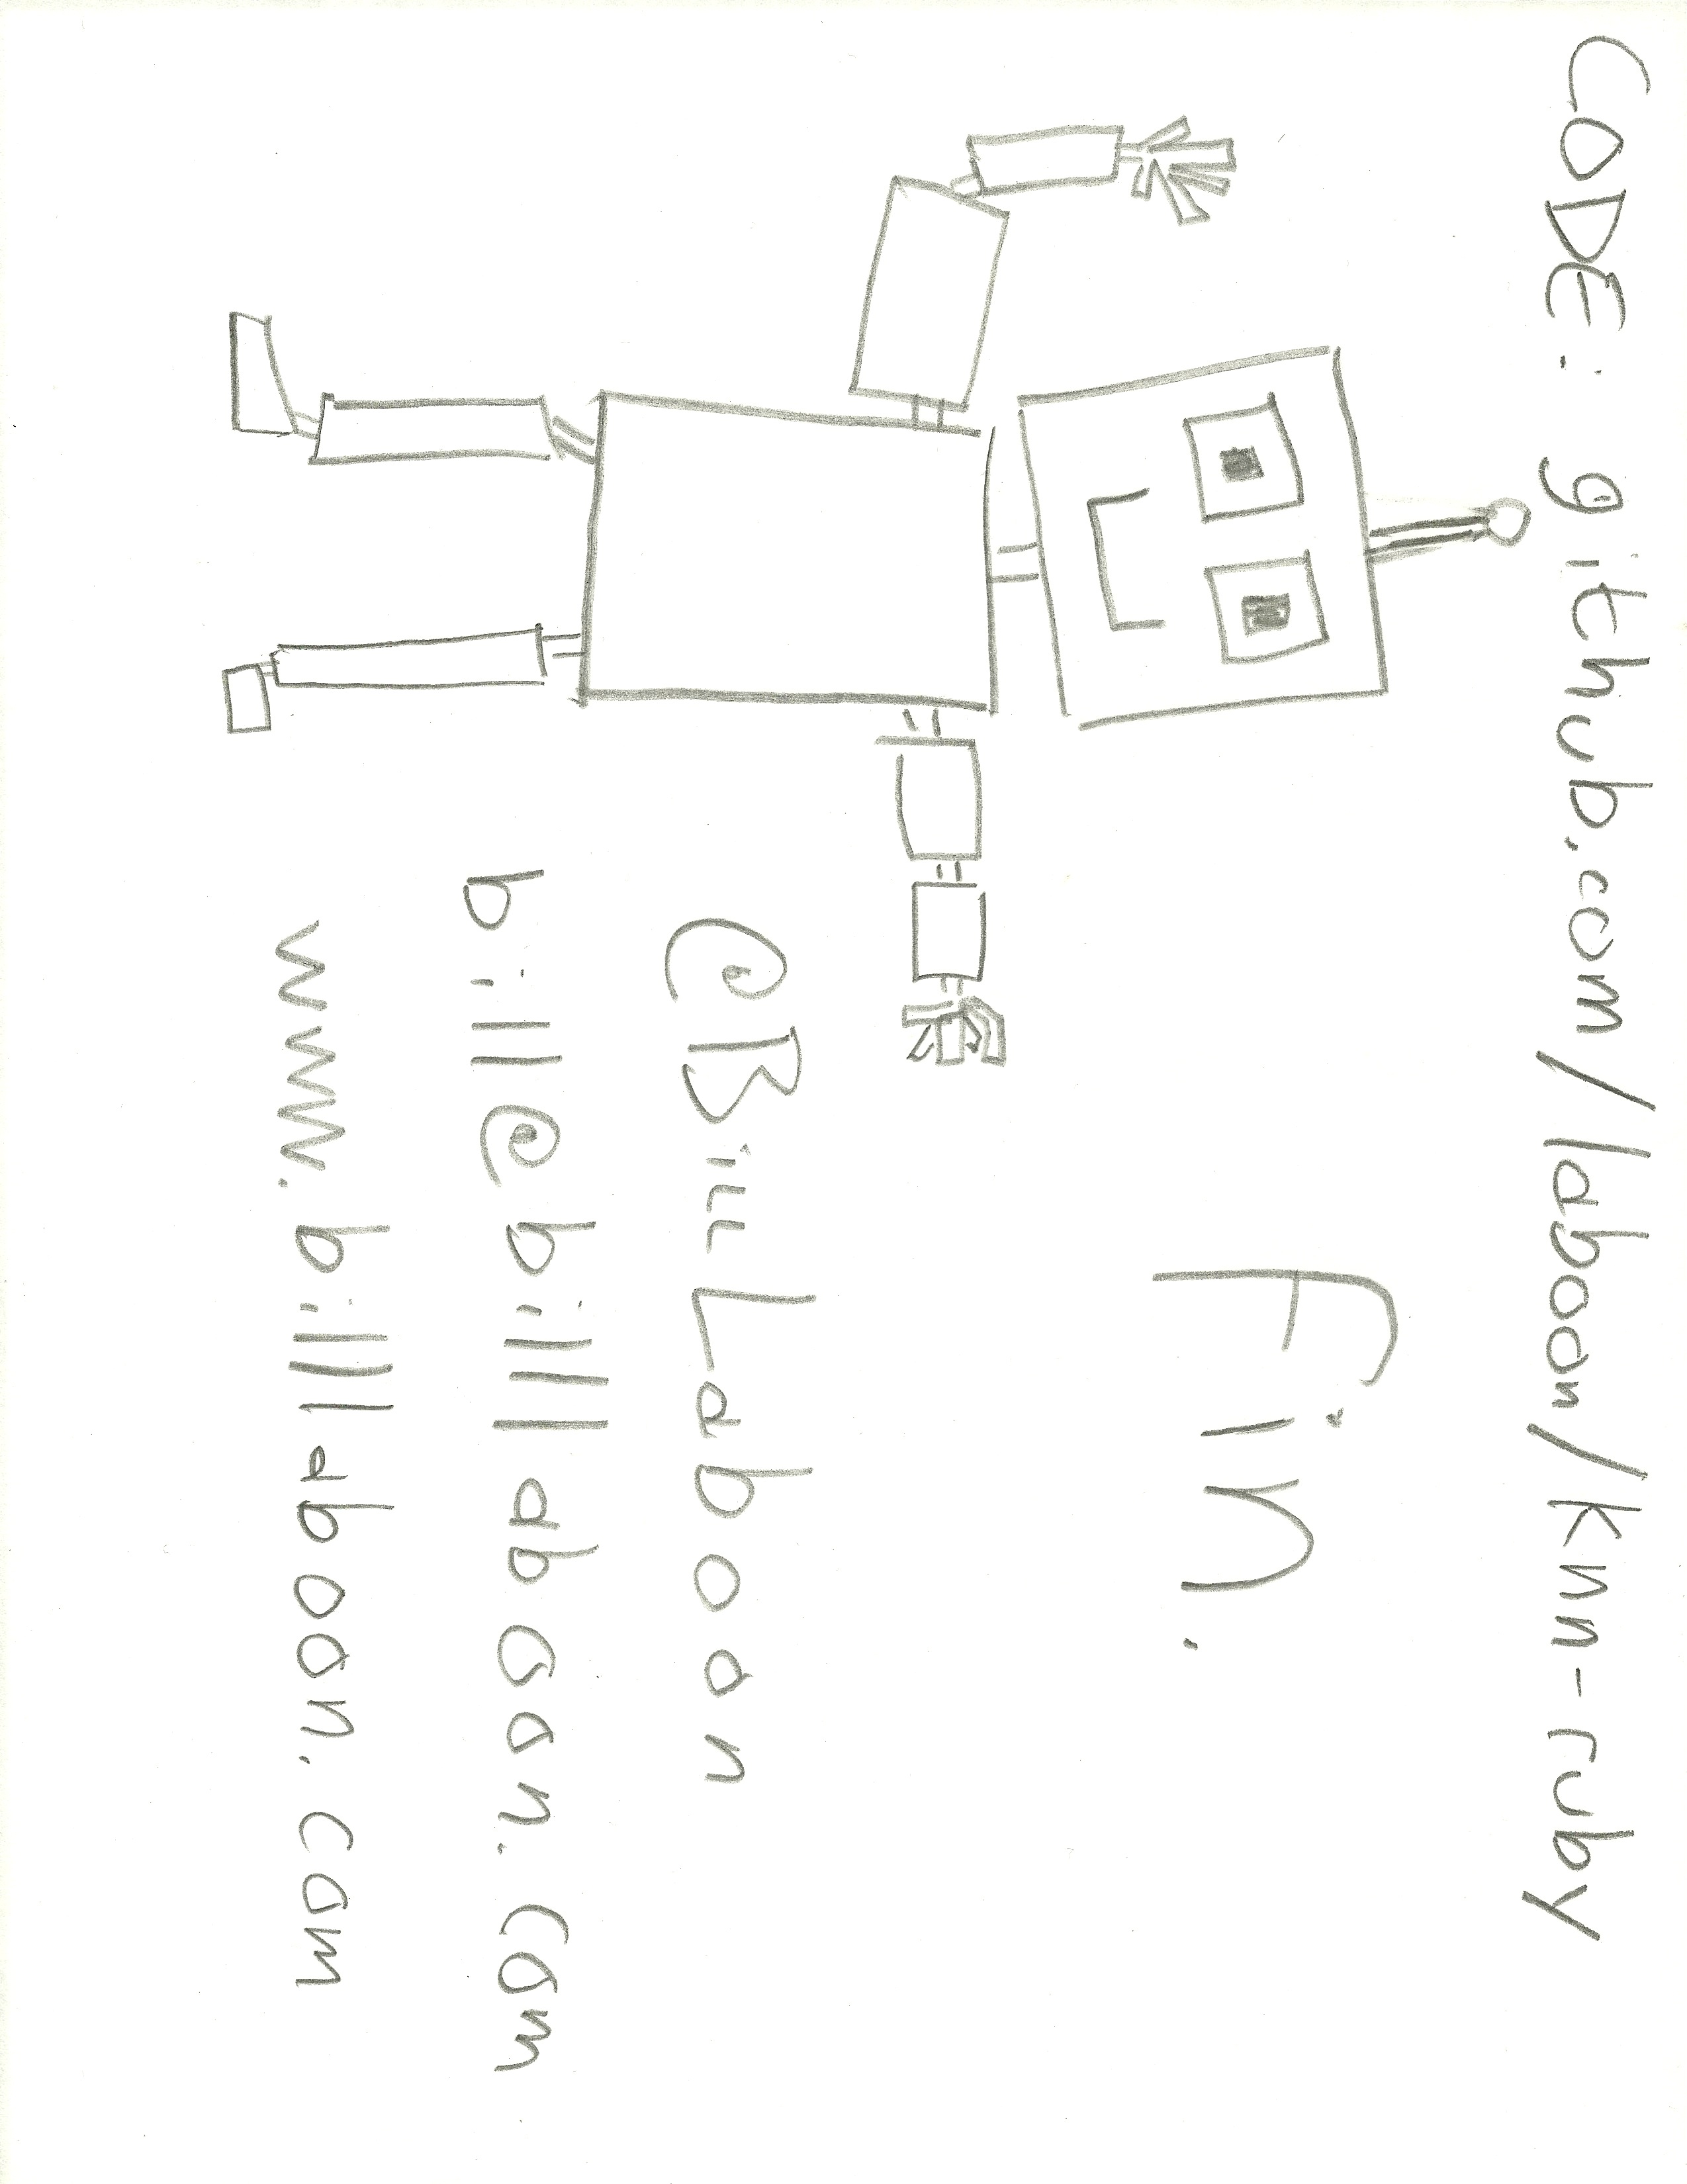 CODE: github.com/laboon/knn-ruby
Fin.
@BillLaboon
bill@billlaboon.com
www.billlaboon.com